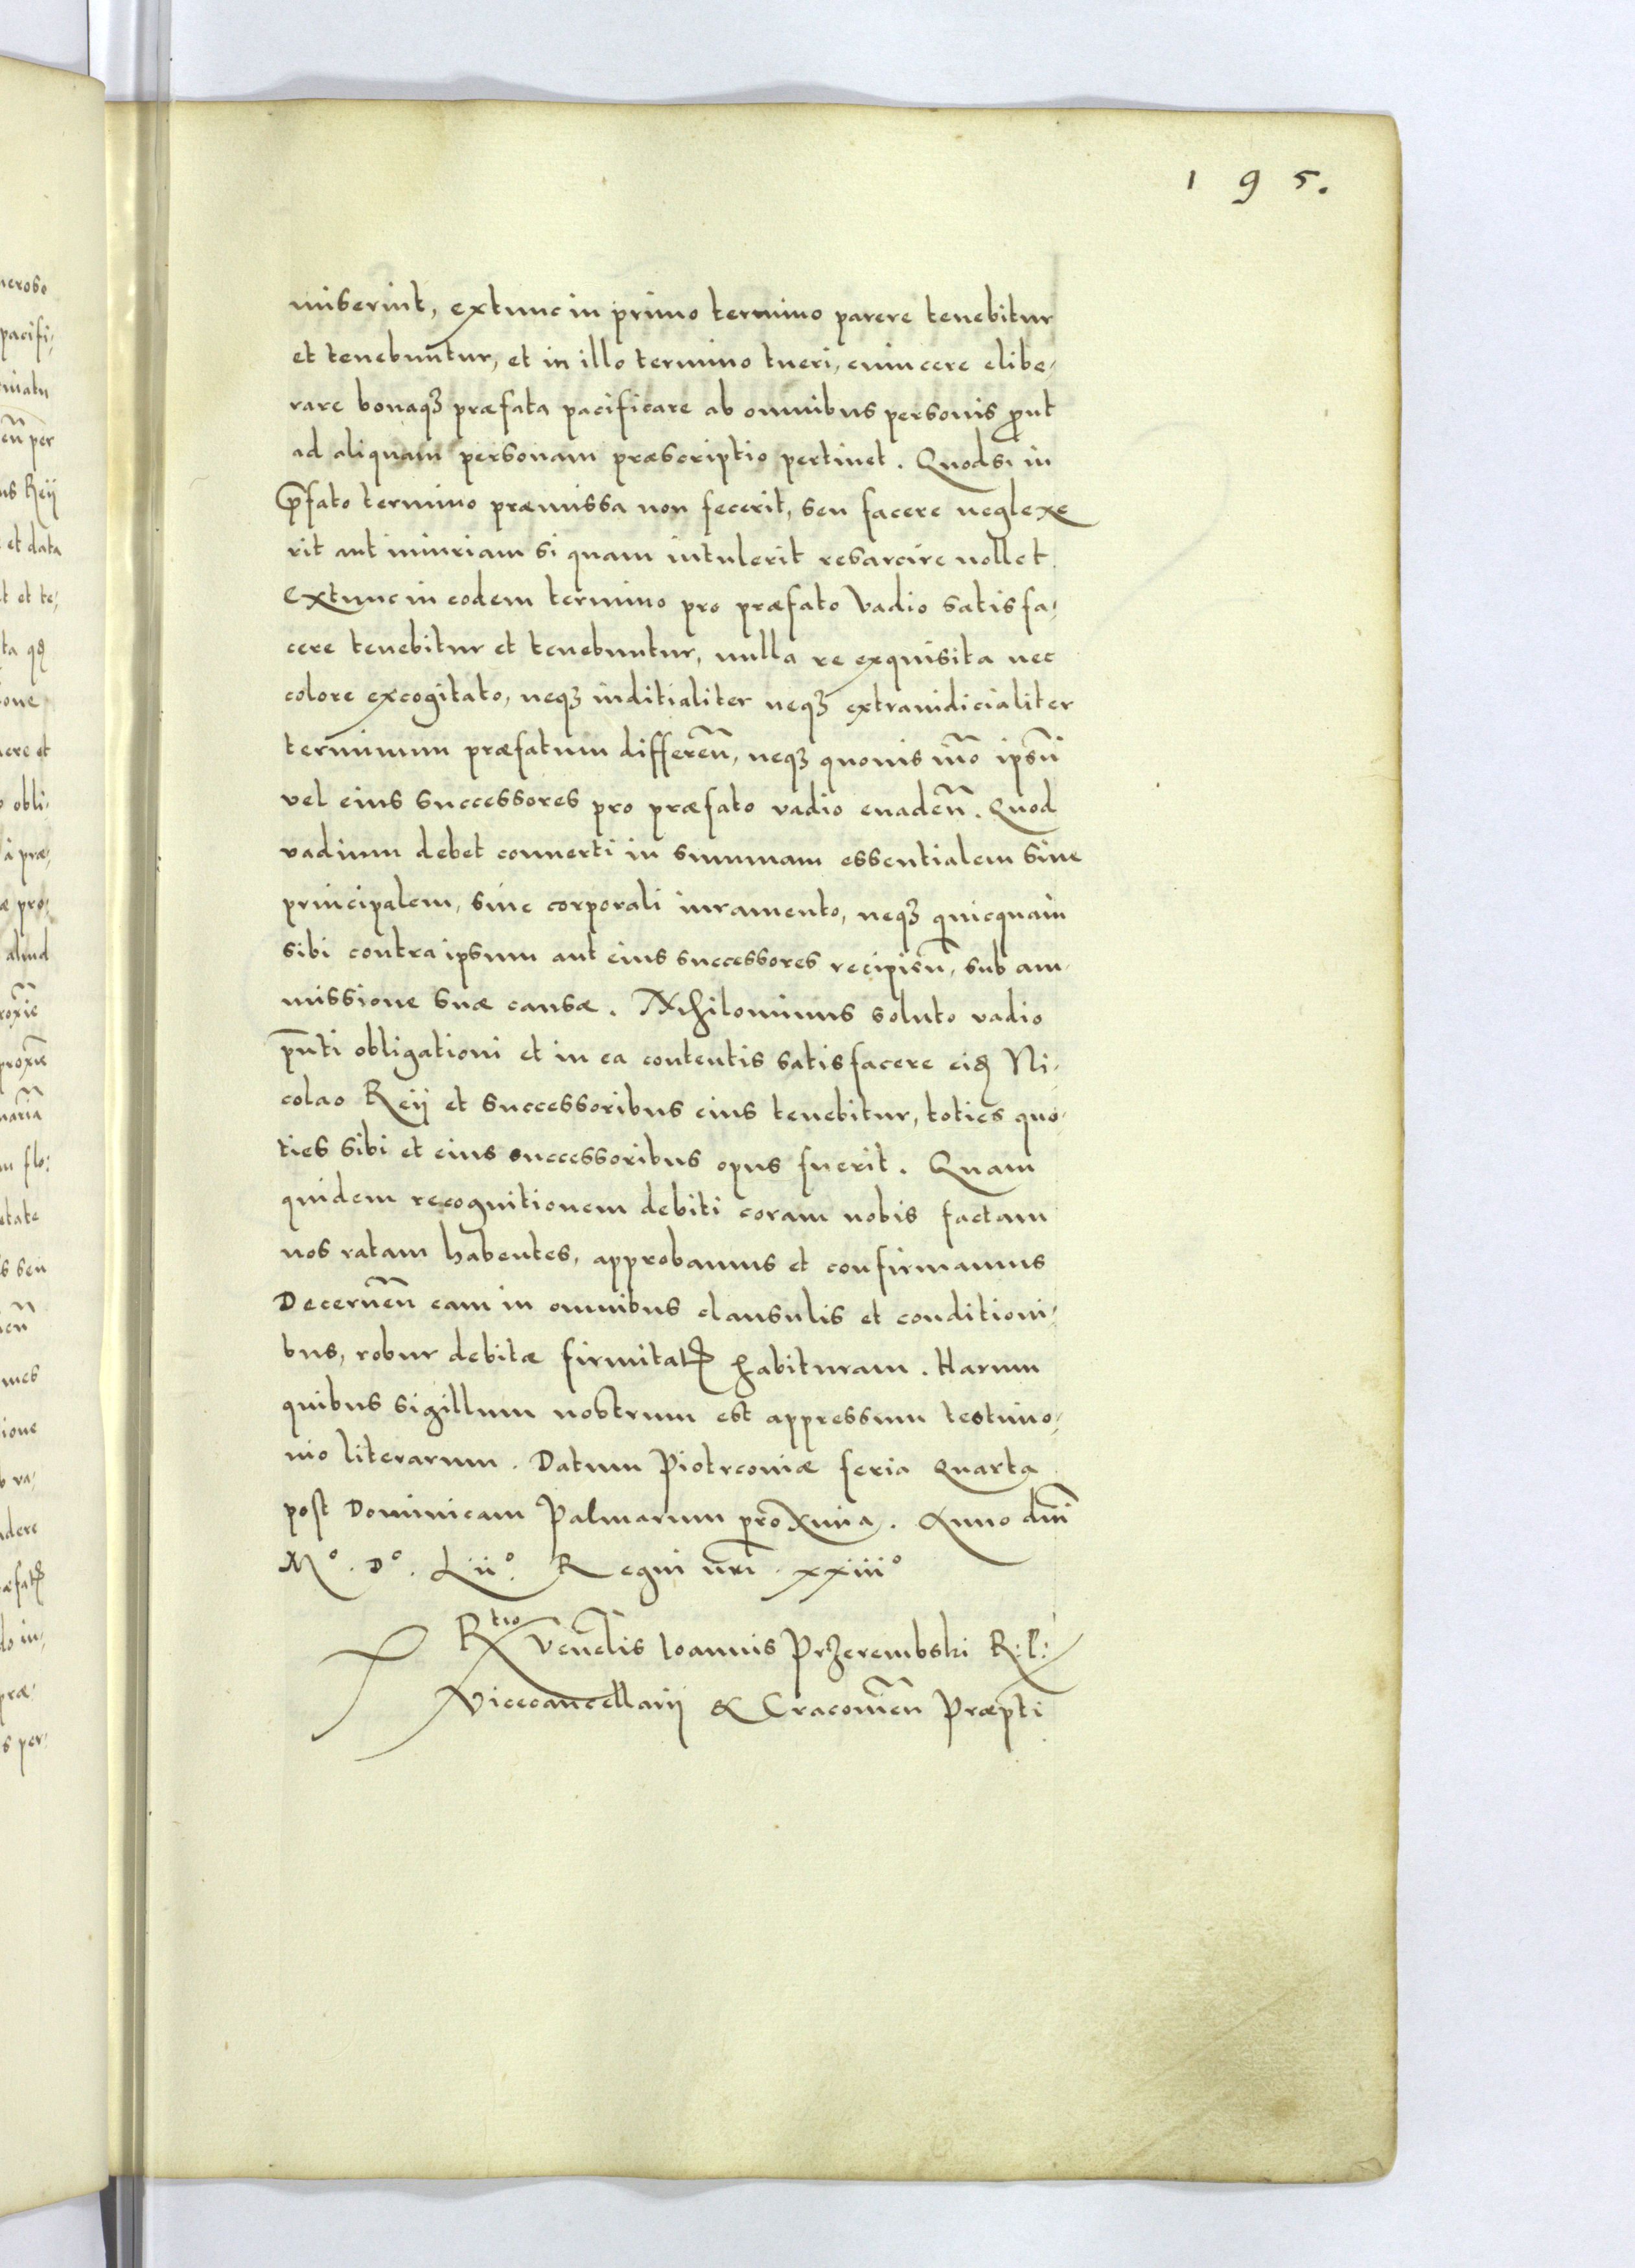 195.
miserint, extunc in primo termino parere tenebitur
et tenebuntur, et in illo termino tueri, euincere elibe-
rare bonaqꝫ præfata pacificare ab omnibus personis ꝓut
ad aliquam personam præscriptio pertinet. Quodsi in
p̄fato termino præmissa non fecerit, seu facere neglexe
rit aut iniuriam si quam intulerit resarcire nollet.
Extunc in eodem termino pro præfato Vadio satisfa-
cere tenebitur et tenebuntur, nulla re exquisita nec
colore excogitato, neqꝫ iuditialiter neqꝫ extraiudicialiter
terminum præfatum differen̄, neqꝫ quouis mō ipsū
vel eius successores pro præfato vadio euaden̄. Quod
vadium debet conuerti in summam essentialem siue
principalem, sine corporali iuramento, neqꝫ quicquam
sibi contra ipsum aut eius successores recipien̄, sub am-
missione suæ causæ. Nihilominus soluto vadio
pn̄ti obligationi et in ea contentis satisfacere eidꝫ Ni-
colao Reij et successoribus eius tenebitur, toties quo-
ties sibi et eius successoribus opus fuerit. Quam
quidem recognitionem debiti coram nobis factam
nos ratam habentes, approbamus et confirmamus
Decernen̄ eam in omnibus clausulis et conditioni-
bus, robur debitæ firmitatꝭ habituram. Harum
quibus sigillum nostrum est appressum testimo-
nio literarum. Datum Piotrcouiæ feria quarta
post Dominicam Palmarum proxima. Anno dn̄i
Mº. Dº. Liiº. Regni nr̄i. xxiiiº
Rtio Ven̄elis Ioannis Przerembski R: P:
Vicecancellarij & Cracouien̄ Præpti